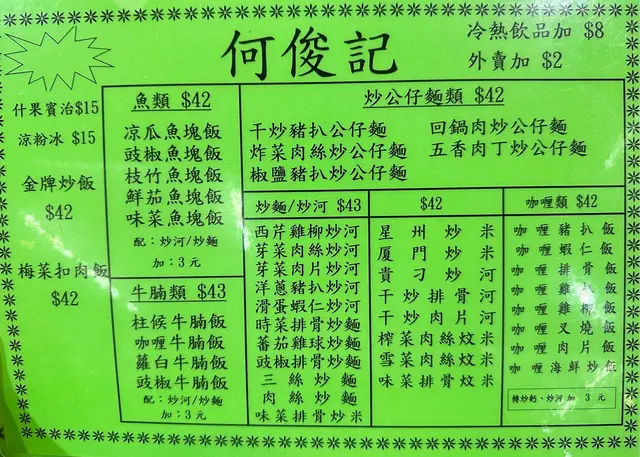 何俊記
冷熱飲品加 $8
外賣加 $2
什果賓治$15
涼粉冰 $15
金牌炒飯
$42
梅菜扣肉飯
$42
魚類 $42
凉瓜魚塊飯
豉椒魚塊飯
枝竹魚塊飯
鮮茄魚塊飯
味菜魚塊飯
配：炒河/炒麵
加：3元
牛腩類 $43
柱候牛腩飯
咖喱牛腩飯
蘿白牛腩飯
豉椒牛腩飯
配：炒河/炒麵
加：3元
炒公仔麵類 $42
干炒豬扒公仔麵
炸菜肉絲炒公仔麵
椒鹽豬扒炒公仔麵
回鍋肉炒公仔麵
五香肉丁炒公仔麵
炒麵/炒河 $43
西芹雞柳炒河
芽菜肉絲炒河
芽菜肉片炒河
洋蔥豬扒炒河
滑蛋蝦仁炒河
時菜排骨炒麵
蕃茄雞球炒麵
豉椒排骨炒麵
三絲炒麵
肉絲炒麵
味菜排骨炒米
$42
星州炒米
厦門炒米
貴刁炒河
干炒排骨河
干炒肉片河
榨菜肉絲炆米
雪菜肉絲炆米
味菜排骨炆米
咖喱類 $42
咖喱豬扒飯
咖喱蝦仁飯
咖喱排骨飯
咖喱雞扒飯
咖喱雞柳飯
咖喱叉燒飯
咖喱肉片飯
咖喱海鮮炒飯
轉炒麪、炒河 加 3 元